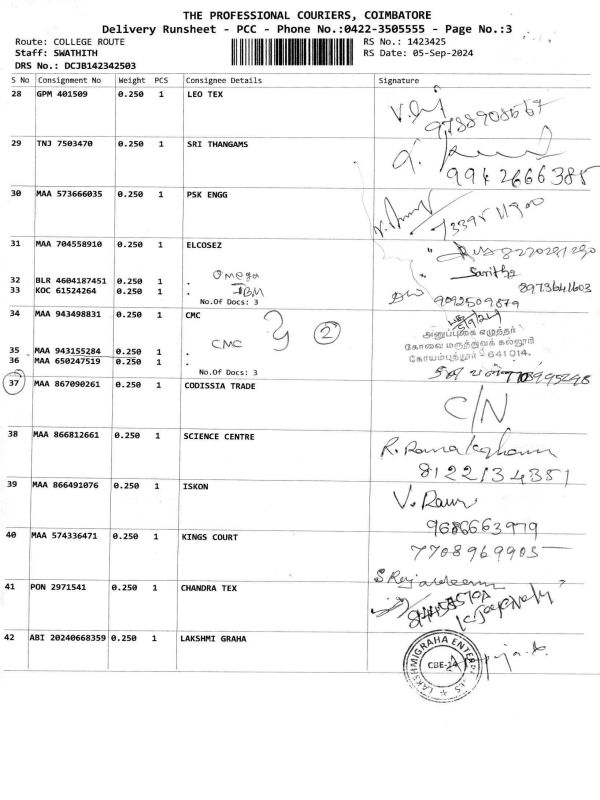 THE PROFESSIONAL COURIERS, COIMBATORE
Delivery Runsheet - PCC - Phone No.:0422-3505555 - Page No.:3
Route: COLLEGE ROUTE RS No.: 1423425
Staff: SWATHITH RS Date: 05-Sep-2024
DRS No.: DCJB142342503
S No Consignment No Weight PCS Consignee Details Signature
28 GPM 401509 0.250 1 LEO TEX
29 TNJ 7503470 0.250 1 SRI THANGAMS
9942666385
30 MAA 573666035 0.250 1 PSK ENGG
31 MAA 704558910 0.250 1 ELCOSEZ
Omega
Sanitha
32 BLR 4604187451 0.250 1 .
33 KOC 61524264 0.250 1 . IBM
8973641603
No.Of Docs: 3
9092509879
34 MAA 943498831 0.250 1 CMC
2
அனுப்புகை எழுத்தர்
கோவை மருத்துவக் கல்லூரி
கோயம்புத்தூர் - 641 014.
CMC
35 MAA 943155284 0.250 1 .
36 MAA 650247519 0.250 1 .
No.Of Docs: 3
37 MAA 867090261 0.250 1 CODISSIA TRADE
C/N
38 MAA 866812661 0.250 1 SCIENCE CENTRE
8122134351
39 MAA 866491076 0.250 1 ISKON
9686663979
40 MAA 574336471 0.250 1 KINGS COURT
7708969905
41 PON 2971541 0.250 1 CHANDRA TEX
42 ABI 20240668359 0.250 1 LAKSHMI GRAHA
LAKSHMIGRAHA ENTERPRISES
CBE-14